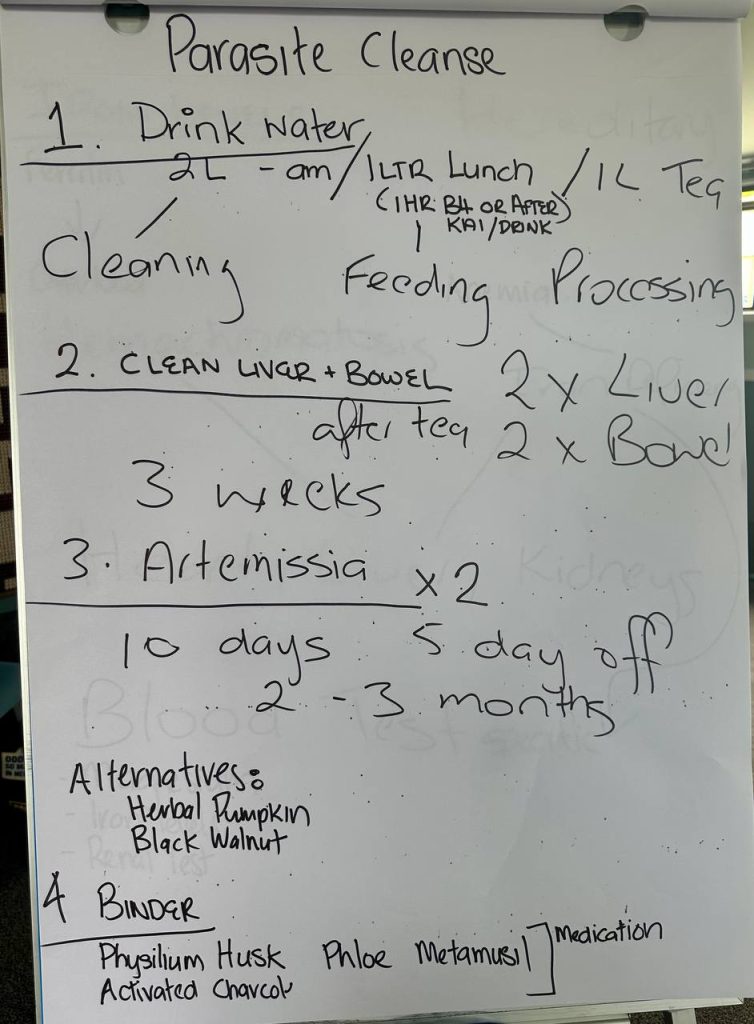 Parasite Cleanse
1. Drink Water
2L - am / 1LTR Lunch / 1L Tea
(1HR B4 OR AFTER)
KAI/DRINK
Cleaning Feeding Processing
2. CLEAN LIVER + BOWEL 2 x Liver
after tea 2 x Bowel
3 weeks
3. Artemissia x 2
10 days 5 day off
2 - 3 months
Alternatives:
Herbal Pumpkin
Black Walnut
4 BINDER
Physilium Husk Phloe Metamusil ] Medication
Activated Charcol
Hereditary
Kidneys
Blood Test
- Iron
- Renal Test